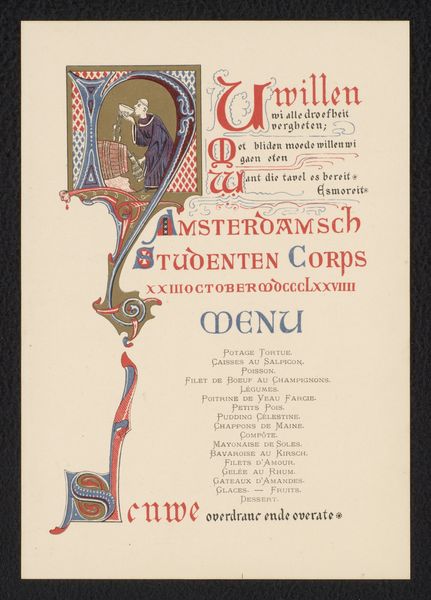 Nu willen
wi alle droefheit
vergheten;
Met bliden moede willen wi
gaen eten
Want die tavel es bereit
Esmoreit
AMSTERDAMSCH
STUDENTEN CORPS
XXIII OCTOBER MDCCCLXXVIIII
MENU
POTAGE TORTUE.
CAISSES AU SALPICON.
POISSON.
FILET DE BOEUF AU CHAMPIGNONS.
LÉGUMES.
POITRINE DE VEAU FARCIE.
PETITS POIS.
PUDDING CÉLESTINE.
CHAPPONS DE MAINE.
COMPÔTE.
MAYONAISE DE SOLES.
BAVAROISE AU KIRSCH.
FILETS D'AMOUR.
GELÉE AU RHUM.
GATEAUX D'AMANDES.
GLACES. — FRUITS.
DESSERT.
Scuwe overdranc ende overate